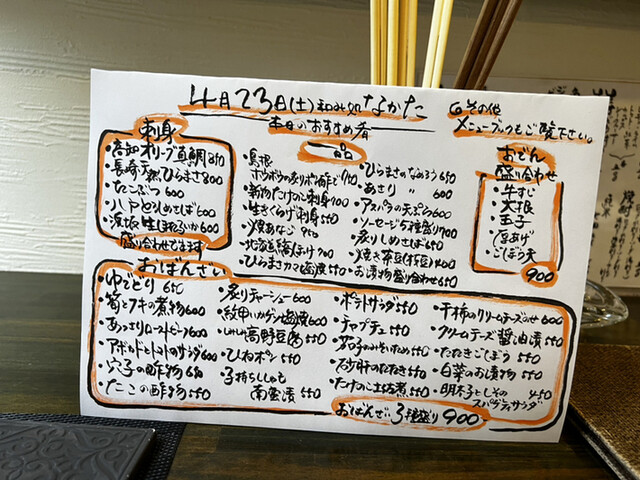 4月23日(土) 和み処 なかた
本日のおすすめ肴
その他
メニューブックもご覧下さい。
刺身
・高知オリーブ真鯛 850
・長崎天然ひらまさ 800
・たこぶつ 600
・八戸とろしめさば 600
・浜坂生ほたるいか 600
盛り合わせできます
一品
・島根
ホウボウの炙りポン酢で
・新物たけのこ刺身 700
・生きくらげ刺身 550
・焼あなご 950
・北海道縞ほっけ 700
・ひらまさカマ塩焼 550
・ひらまさのなめろう 650
・あさり 〃 600
・アスパラの天ぷら 600
・ソーセージ5種盛り 700
・炙りしめさば 650
・焼き茶豆(枝豆) 400
・お漬物盛り合わせ 650
おでん
盛り合わせ
・牛すじ
・大根
・玉子
・厚あげ
・ごぼう天
900
おばんざい
・ゆでどり 650
・筍とフキの煮物 600
・あっさりローストビーフ 600
・アボカドとトマトのサラダ 600
・穴子の酢物 650
・たこの酢物 550
・炙りチャーシュー 600
・紋甲いかゲソ塩焼 600
・しみしみ高野豆腐 550
・ひねポン 550
・子持ちししゃも
南蛮漬 550
・ポテトサラダ 550
・チャプチェ 550
・茄子のみそいため 550
・たけのこ土佐煮 550
・干柿のクリームチーズのせ 600
・クリームチーズ醤油漬 550
・たたきごぼう 550
・白菜のお漬物 550
・明太子としその 450
スパゲティサラダ
おばんざい3種盛り 900